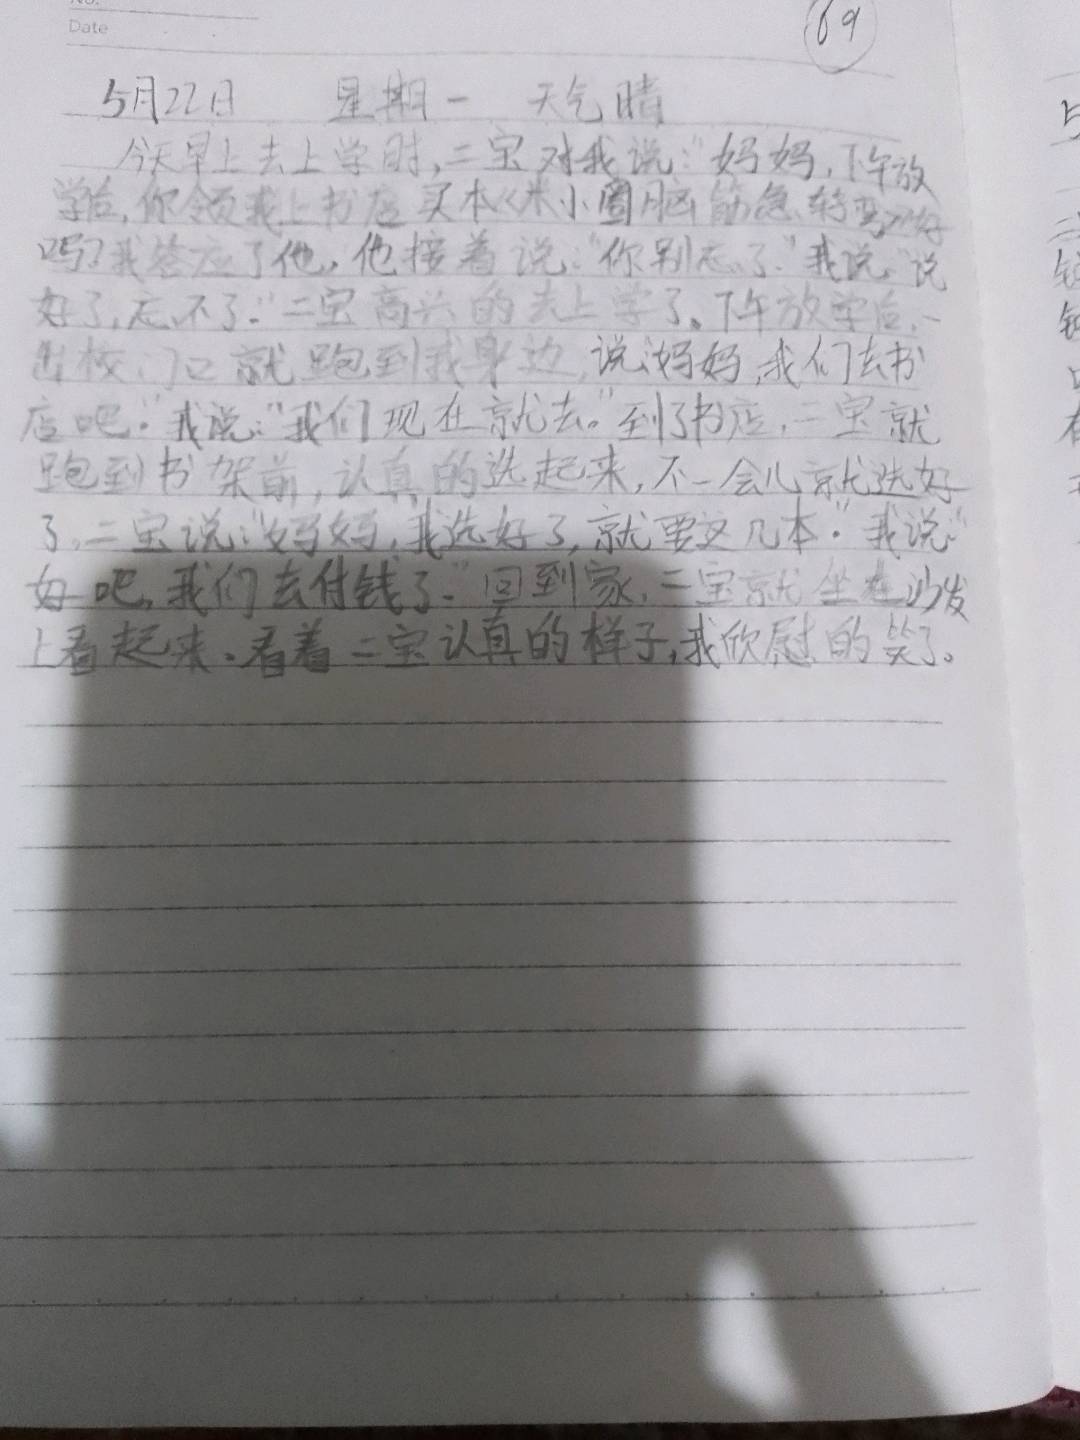 No.
Date
69
5月22日 星期一 天气晴
今天早上去上学时,二宝对我说:"妈妈,下午放
学后,你领我上书店买本《米小圈脑筋急转弯》好
吗?我答应了他,他接着说:"你别忘了"我说"说
好了,忘不了."二宝高兴的去上学了。下午放学后,一
出校门口就跑到我身边,说:"妈妈,我们去书
店吧."我说:"我们现在就去。"到了书店,二宝就
跑到书架前,认真的选起来,不一会儿就选好
了,二宝说:"妈妈,我选好了,就要这几本."我说"
好吧,我们去付钱了."回到家,二宝就坐在沙发
上看起来.看着二宝认真的样子,我欣慰的笑了。